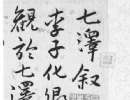 七澤叙
李子化卿
觀於七澤